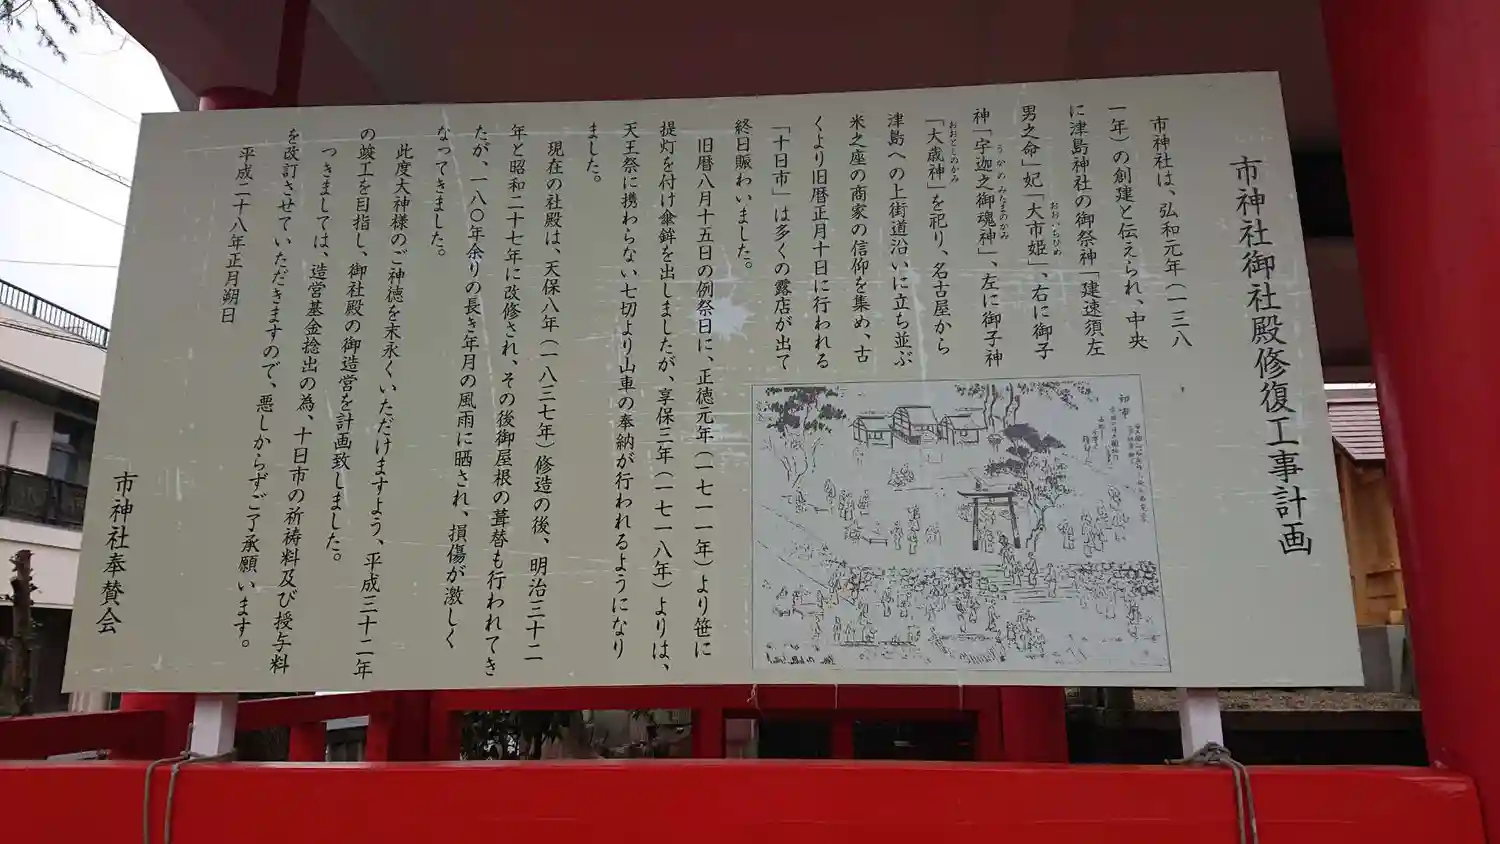 市神社御社殿修復工事計画
市神社は、弘和元年（一三八
一年）の創建と伝えられ、中央
に津島神社の御祭神「建速須左
男之命」妃「大市姫」、右に御子
おおいちひめ
神「宇迦之御魂神」、左に御子神
うかの みたまのかみ
「大歳神」を祀り、名古屋から
おおとしのかみ
津島への上街道沿いに立ち並ぶ
米之座の商家の信仰を集め、古
くより旧暦正月十日に行われる
「十日市」は多くの露店が出て
終日賑わいました。
旧暦八月十五日の例祭日に、正徳元年（一七一一年）より笹に
提灯を付け傘鉾を出しましたが、享保三年（一七一八年）よりは、
天王祭に携わらない七切より山車の奉納が行われるようになり
ました。
現在の社殿は、天保八年（一八三七年）修造の後、明治三十二
年と昭和二十七年に改修され、その後御屋根の葺替も行われてき
たが、一八〇年余りの長き年月の風雨に晒され、損傷が激しく
なってきました。
此度大神様のご神徳を末永くいただけますよう、平成三十二年
の竣工を目指し、御社殿の御造営を計画致しました。
つきましては、造営基金捻出の為、十日市の祈祷料及び授与料
を改訂させていただきますので、悪しからずご了承願います。
平成二十八年正月朔日
市神社奉賛会